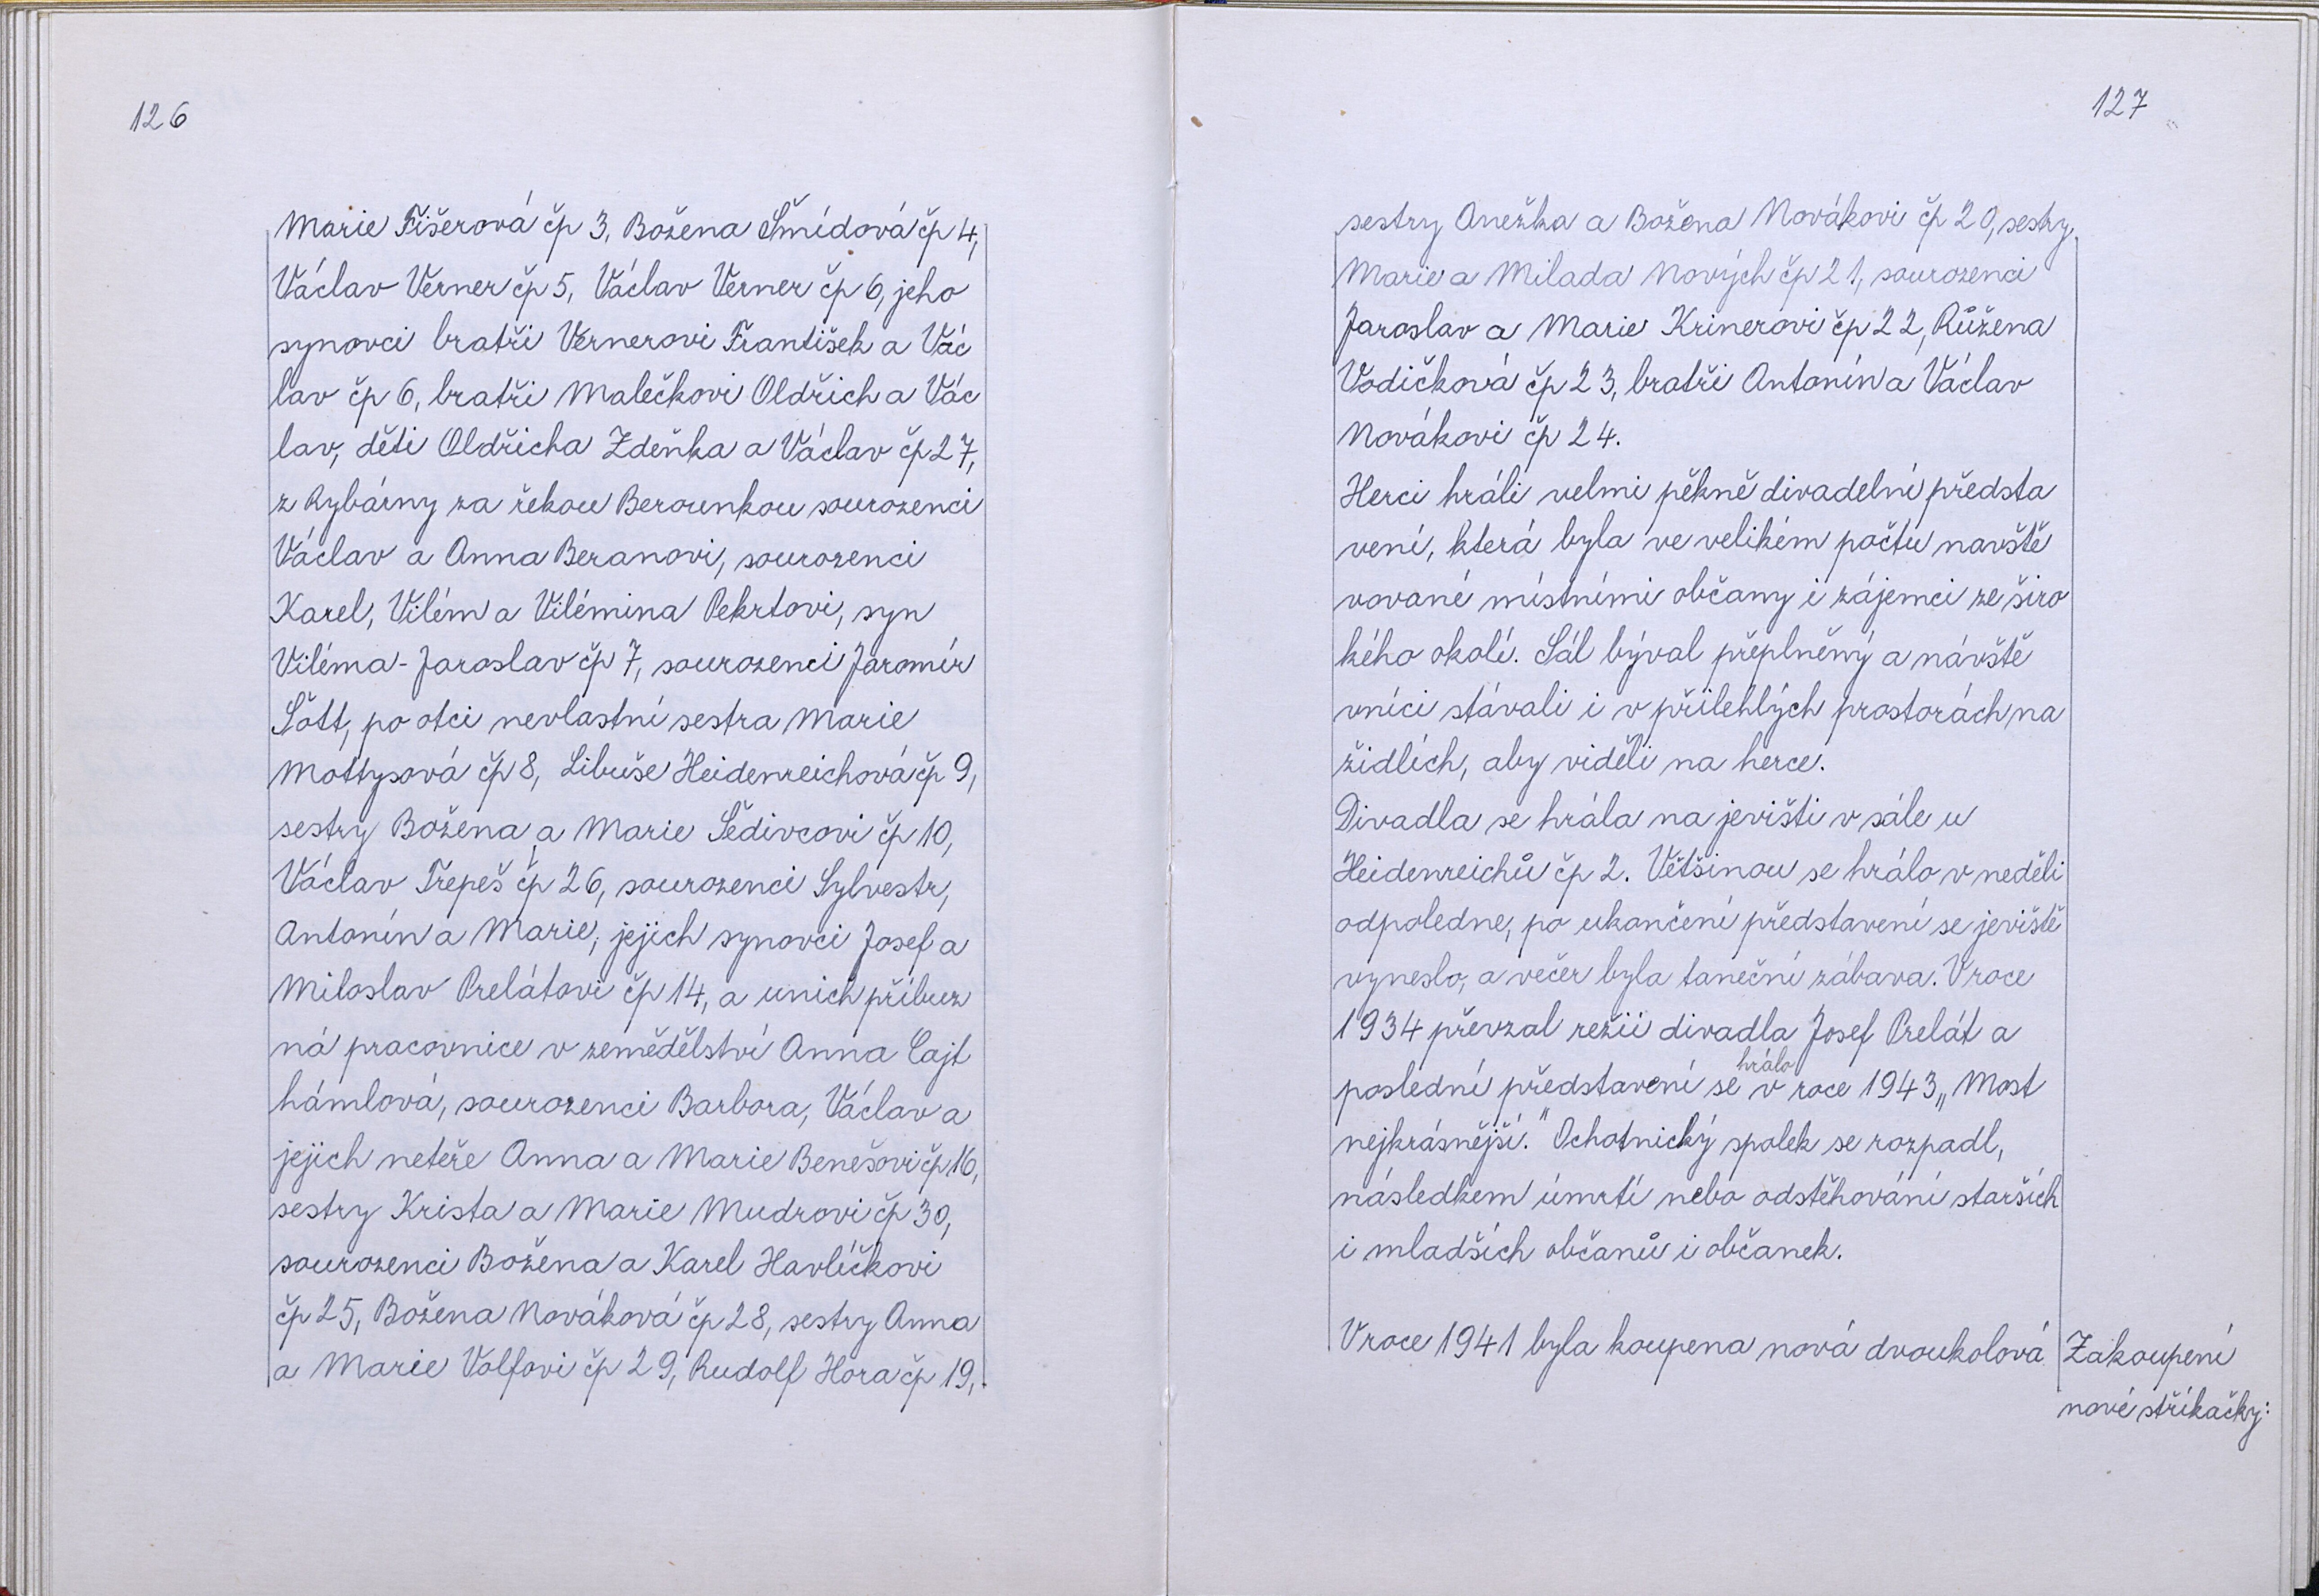 126
Marie Fišerová čp 3, Božena Šmídová čp 4,
Václav Verner čp 5, Václav Verner čp 6, jeho
synovci bratři Vernerovi František a Vác
lav čp 6, bratři Malečkovi Oldřich a Vác
lav, děti Oldřicha Zdeňka a Václav čp 27,
z Rybárny za řekou Berounkou sourozenci
Václav a Anna Beranovi, sourozenci
Karel, Vilém a Vilémina Pekrtovi, syn
Viléma - Jaroslav čp 7, sourozenci Jaromír
Šott, po otci nevlastní sestra Marie
Mottysová čp 8, Libuše Heidenreichová čp 9,
sestry Božena a Marie Šedivcovi čp 10,
Václav Třepeš čp 26, sourozenci Sylvestr,
Antonín a Marie, jejich synovci Josef a
Miloslav Prelátovi čp 14, a unich příbuz
ná pracovnice v zemědělství Anna Cajt
hámlová, sourozenci Barbora, Václav a
jejich neteře Anna a Marie Benešovi čp 16,
sestry Krista a Marie Mudrovi čp 30,
sourozenci Božena a Karel Havlíčkovi
čp 25, Božena Nováková čp 28, sestry Anna
a Marie Volfovi čp 29, Rudolf Hora čp 19,
127
sestry Anežka a Božena Novákovi čp 20, sestry
Marie a Milada Nových čp 21, sourozenci
Jaroslav a Marie Krinerovi čp 22, Růžena
Vodičková čp 23, bratři Antonín a Václav
Novákovi čp 24.
Herci hráli velmi pěkně divadelní předsta
vení, která byla ve velikém počtu navště
vované místními občany i zájemci ze širo
kého okolí. Sál býval přeplněný a návště
vníci stávali i v přilehlých prostorách na
židlích, aby viděli na herce.
Divadla se hrála na jevišti v sále u
Heidenreichů čp 2. Většinou se hrálo v neděli
odpoledne, po ukončení představení se jeviště
vyneslo, a večer byla taneční zábava. V roce
1934 převzal režii divadla Josef Prelát a
poslední představení se hrálo v roce 1943 „Most
nejkrásnější." Ochotnický spolek se rozpadl,
následkem úmrtí nebo odstěhování starších
i mladších občanů i občanek.
V roce 1941 byla koupena nová dvoukolová
Zakoupení
nové stříkačky: